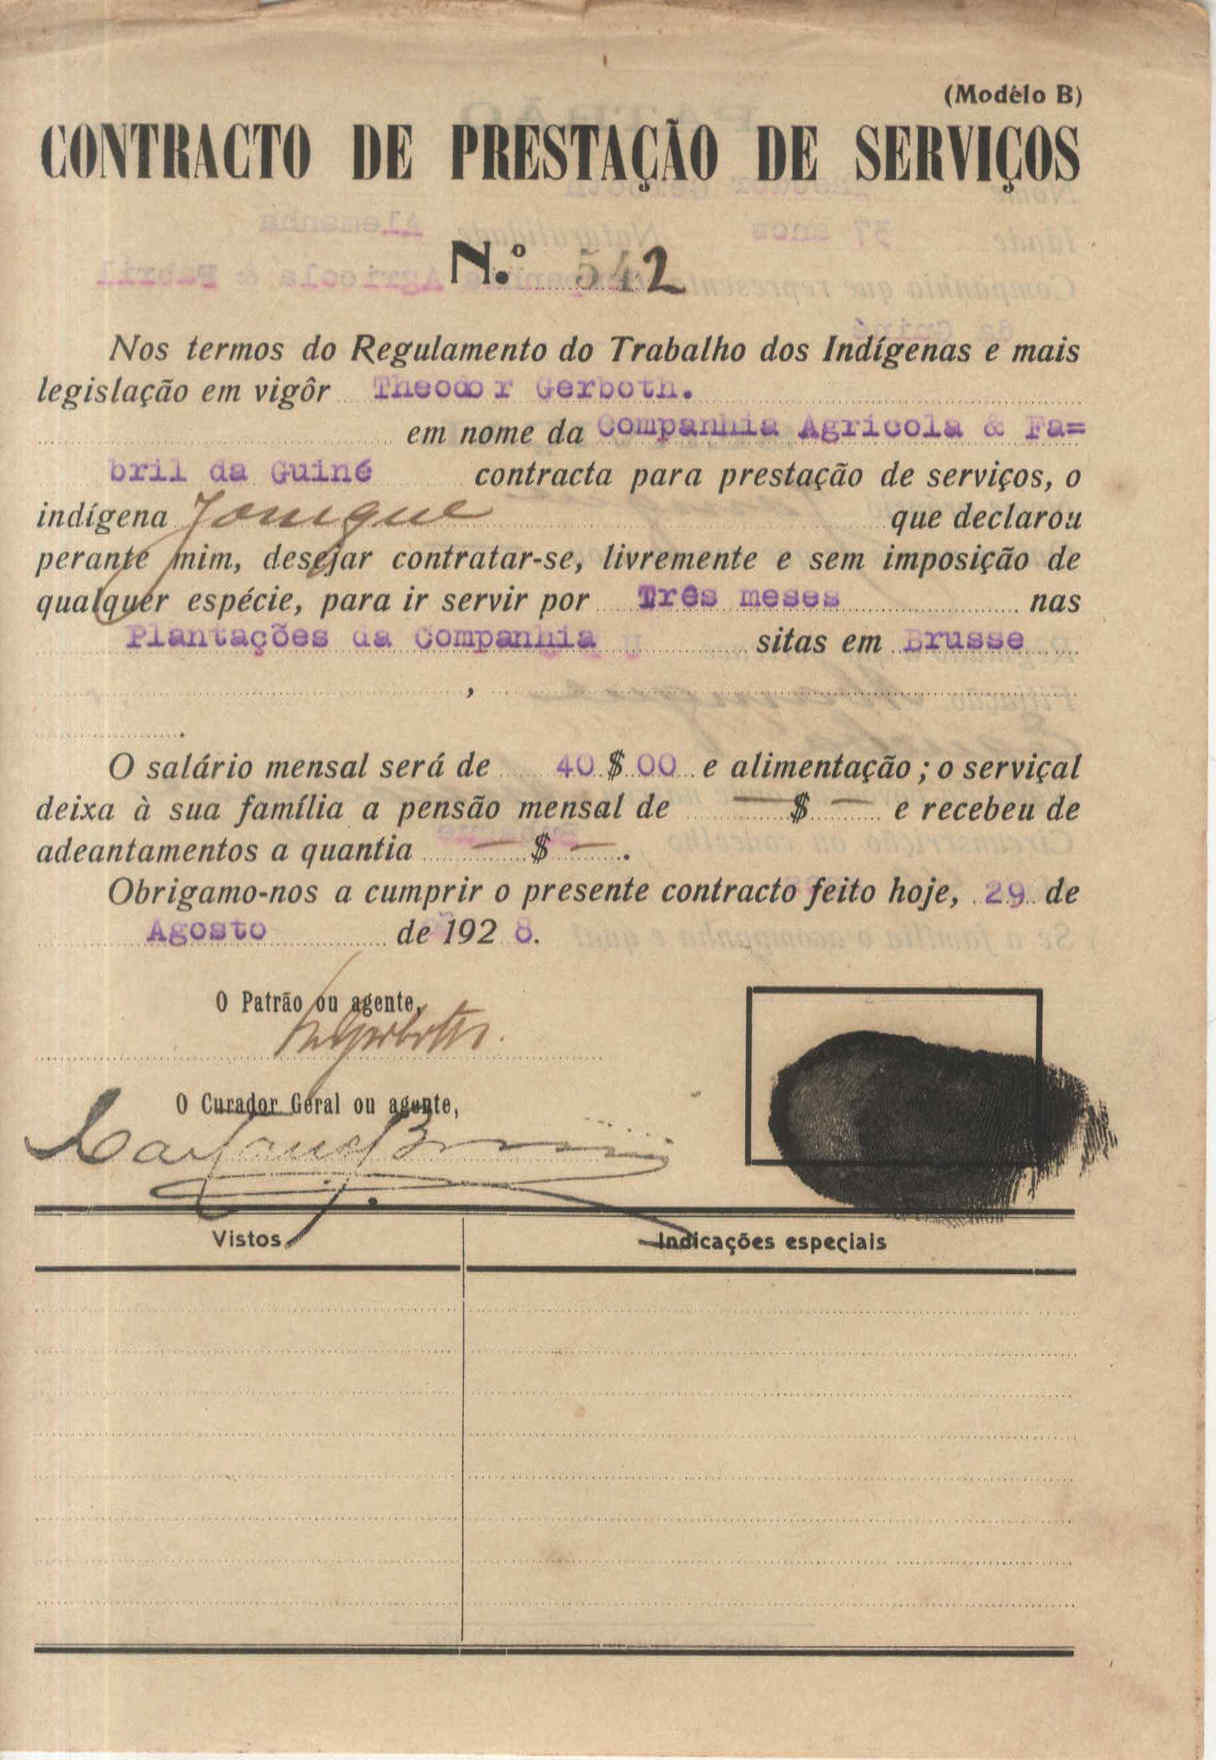 (Modêlo B)
CONTRACTO DE PRESTAÇÃO DE SERVIÇOS
N.º 542
Nos termos do Regulamento do Trabalho dos Indígenas e mais
legislação em vigôr Theodor Gerboth.
em nome da Companhia Agricola & Fa=
bril da Guiné contracta para prestação de serviços, o
indígena que declarou
perante mim, desejar contratar-se, livremente e sem imposição de
qualquer espécie, para ir servir por Três meses nas
Plantações da Companhia sitas em Brusse
,
.
O salário mensal será de 40 $ 00 e alimentação ; o serviçal
deixa à sua família a pensão mensal de — $ — e recebeu de
adeantamentos a quantia — $ — .
Obrigamo-nos a cumprir o presente contracto feito hoje, 29 de
Agosto de 192 8.
O Patrão ou agente,
O Curador Geral ou agente,
Vistos Indicações especiais